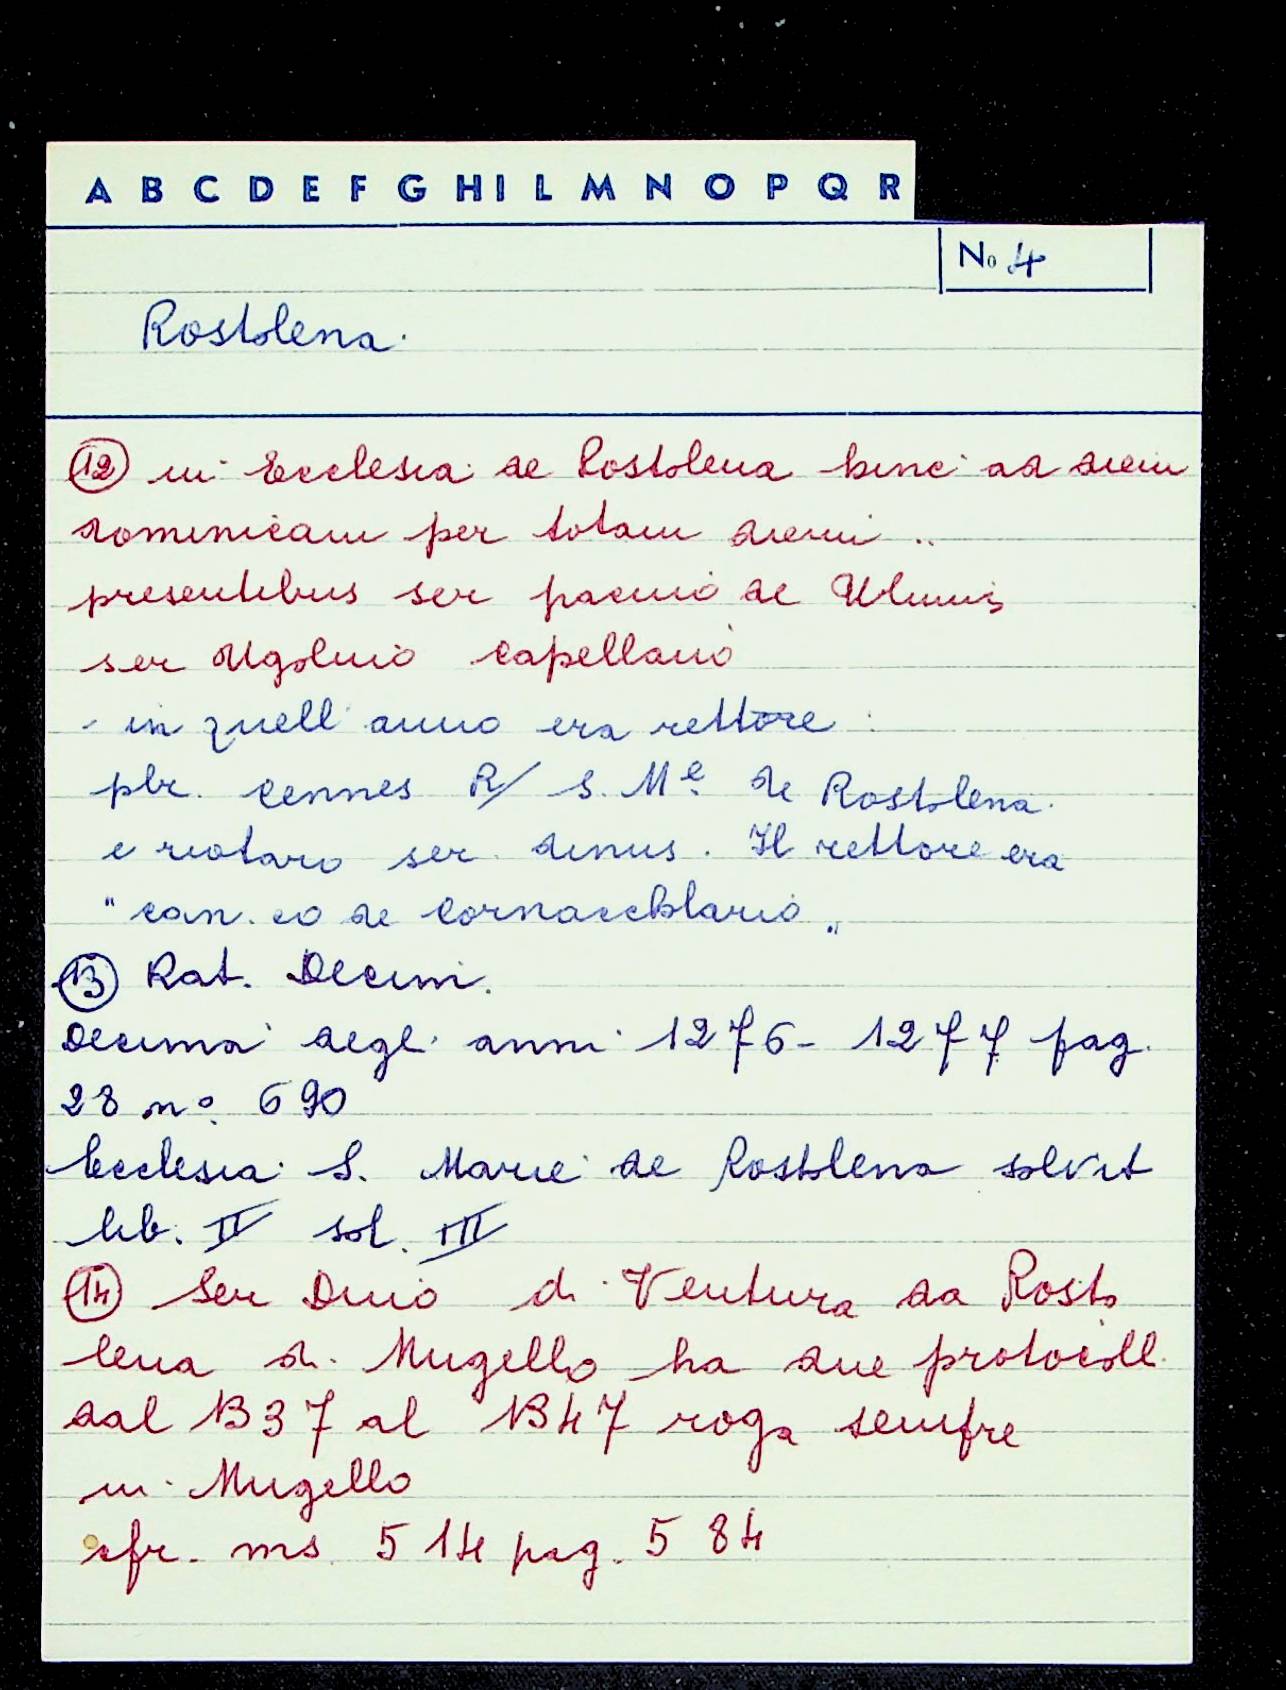 A B C D E F G H I L M N O P Q R
No 4
Rostolena.
12 in Ecclesia de Rostolena hinc ad diem
dominicam per totam diem ..
presentibus ser pacino de Ulmis
ser Ugolino capellano
- in quell' anno era rettore :
pbr. Cennes R/ S. Me. de Rostolena.
e notaro ser dinus. Il rettore era
" can. co de Cornacchlario "
13 Rat. Decim.
Decima degli anni 1276 - 1277 pag.
28 no. 690
Ecclesia S. Marie de Rostolena solvit
lib. II sol. III
14 Ser Dino di Ventura da Rosto
lena di Mugello ha due protocolli
dal 1337 al 1347 roga sempre
in Mugello
cfr. ms. 514 pag. 584